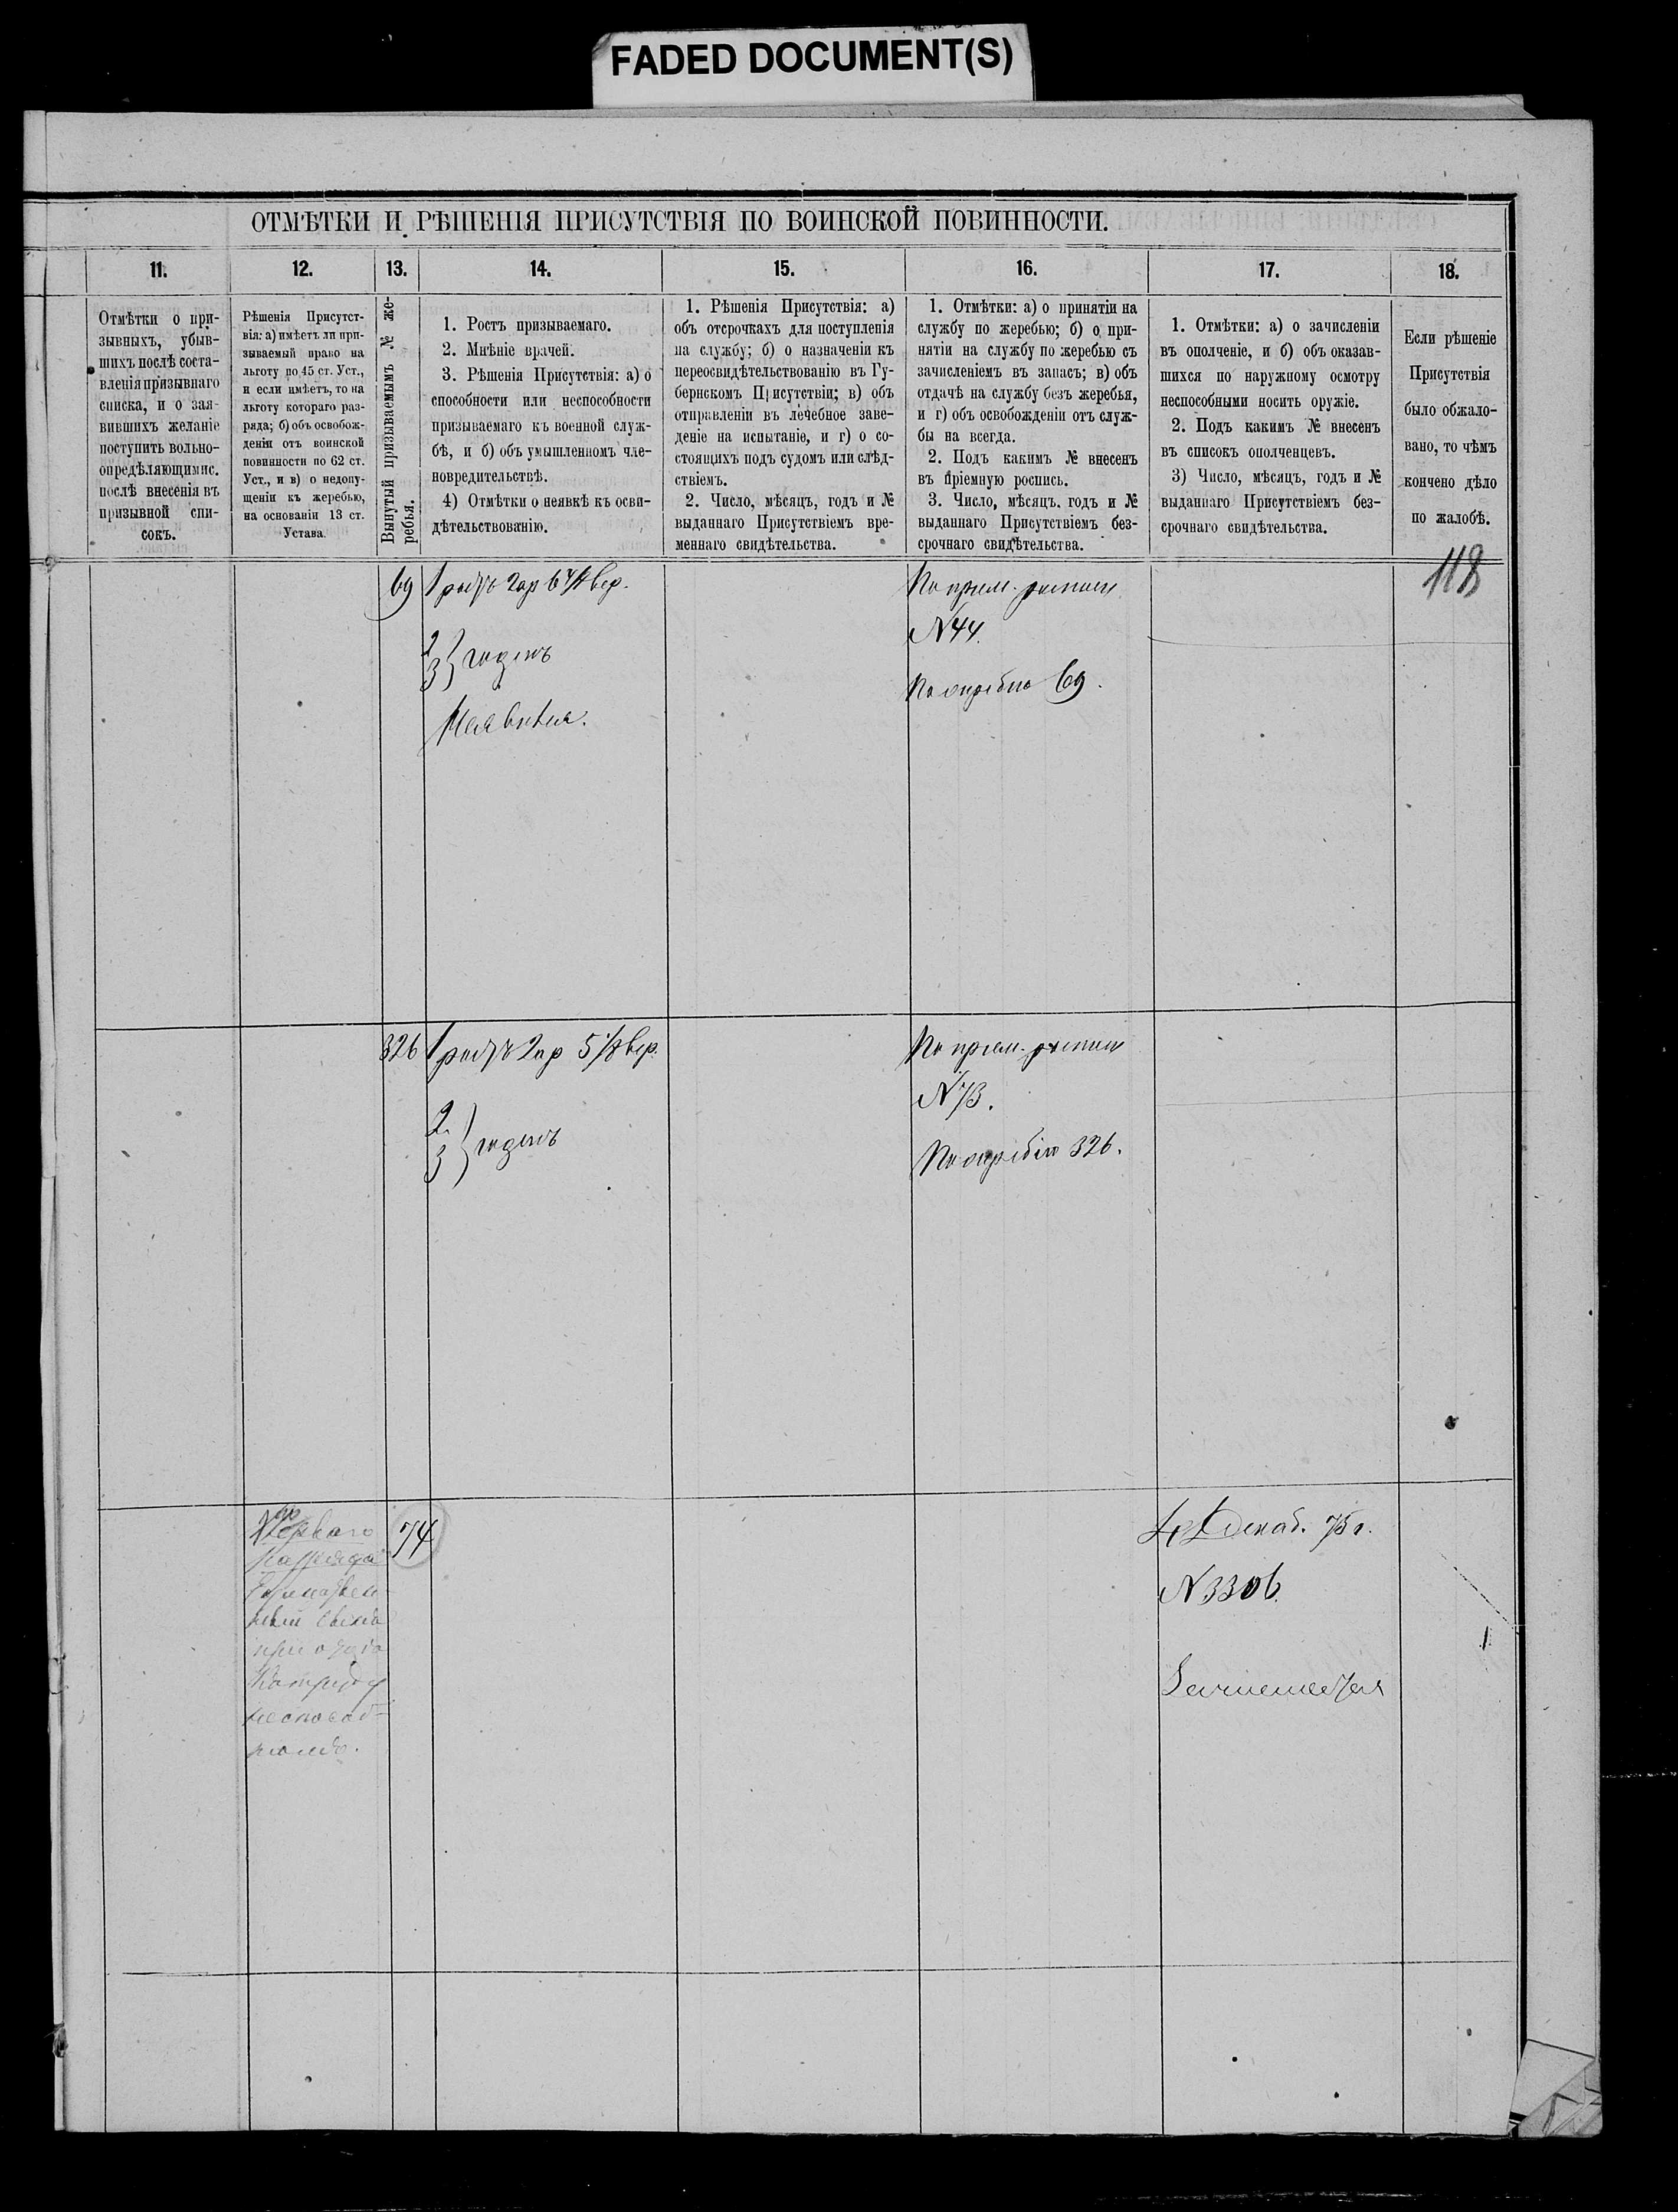 FADED DOCUMENT(S)
ОТМѢТКИ И РѢШЕНІЯ ПРИСУТСТВІЯ ПО ВОИНСКОЙ ПОВИННОСТИ.
11.
Отмѣтки о при-
зывныхъ, убыв-
шихъ послѣ соста-
вленія призывнаго
списка, и о зая-
вившихъ желаніе
поступить вольно-
опредѣляющимис.
послѣ внесенія въ
призывной спи-
сокъ.
12.
Рѣшенія Присутст-
вія: а) имѣетъ ли при-
зываемый право на
льготу по 45 ст. Уст.,
и если имѣетъ, то на
льготу котораго раз-
ряда; б) объ освобож-
деніи отъ воинской
повинности по 62 ст.
Уст., и в) о недопу-
щеніи къ жеребью,
на основаніи 13 ст.
Устава.
13.
Вынутый призываемымъ № же-
ребья.
14.
1. Ростъ призываемаго.
2. Мнѣніе врачей.
3. Рѣшенія Присутствія: а) о
способности или неспособности
призываемаго къ военной служ-
бѣ, и б) объ умышленномъ чле-
новредительствѣ.
4) Отмѣтки о неявкѣ къ осви-
дѣтельствованію.
15.
1. Рѣшенія Присутствія: а)
объ отсрочкахъ для поступленія
на службу; б) о назначеніи къ
переосвидѣтельствованію въ Гу-
бернскомъ Присутствіи; в) объ
отправленіи въ лечебное заве-
деніе на испытаніе, и г) о со-
стоящихъ подъ судомъ или слѣд-
ствіемъ.
2. Число, мѣсяцъ, годъ и №
выданнаго Присутствіемъ вре-
меннаго свидѣтельства.
16.
1. Отмѣтки: а) о принятіи на
службу по жеребью; б) о при-
нятіи на службу по жеребью съ
зачисленіемъ въ запасъ; в) объ
отдачѣ на службу безъ жеребья,
и г) объ освобожденіи отъ служ-
бы на всегда.
2. Подъ какимъ № внесенъ
въ пріемную роспись.
3. Число, мѣсяцъ, годъ и №
выданнаго Присутствіемъ без-
срочнаго свидѣтельства.
17.
1. Отмѣтки: а) о зачисленіи
въ ополченіе, и б) объ оказав-
шихся по наружному осмотру
неспособными носить оружіе.
2. Подъ какимъ № внесенъ
въ списокъ ополченцевъ.
3) Число, мѣсяцъ, годъ и №
выданнаго Присутствіемъ без-
срочнаго свидѣтельства.
18.
Если рѣшеніе
Присутствія
было обжало-
вано, то чѣмъ
кончено дѣло
по жалобѣ.
118
69
1 2 ар 6 4/8 вер.
2
3 } годенъ
По прiем. росписи
N 44.
По жребію 69.
326
1 2 ар 5 1/8 вер.
2.
3 } годенъ
По прiем. росписи
N 73.
По жребію 326.
Перваго
разряда
74
декаб. 75 г.
N 3306.